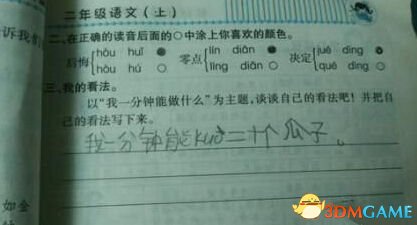 诉我们
二年级语文(上)
二、在正确的读音后面的○中涂上你喜欢的颜色。
后悔 hòu huǐ 零点 lín diǎn 决定 jué dìng
hòu hú líng diǎn qué dìng
三、我的看法。
以“我一分钟能做什么”为主题,谈谈自己的看法吧!并把自
己的看法写下来。
我一分钟能kuò二十个瓜子。
如金
3DMGAME